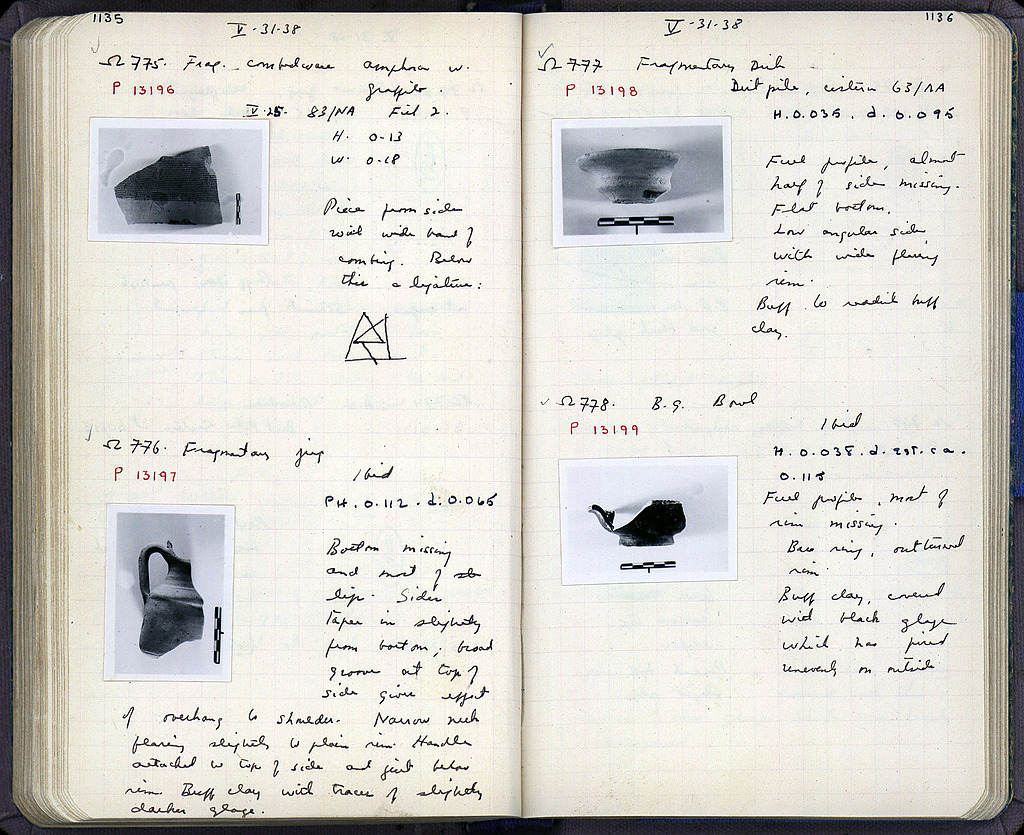 1135
V-31-38
Ω 775. Frag. combedware amphora w.
P 13196
graffito.
V-25. 83/NA Fill 2.
H. 0.13
W. 0.18
Piece from side
with wide band of
combing. Below
this a ligature:
Ω 776. Fragmentary jug
P 13197
Ibid
PH. 0.112. d. 0.065
Bottom missing
and most of
lip. Sides
taper in slightly
from bottom; broad
groove at top of
side gives effect
of overhang to shoulder. Narrow neck
flaring slightly to plain rim. Handle
attached to top of side and just below
rim. Buff clay with traces of slightly
darker glaze.
1136
V-31-38
Ω 777 Fragmentary Dish
P 13198
Dirt pile, cistern 63/NA
H. 0.035. d. 0.095
Full profile, almost
half of side missing.
Flat bottom.
Low angular side
with wide flaring
rim.
Buff to reddish buff
clay.
Ω 778. B.g. Bowl
P 13199
Ibid
H. 0.038. d. est. ca.
0.115
Full profile, most of
rim missing.
Base ring, outturned
rim.
Buff clay, covered
with black glaze
which has fired
unevenly on outside